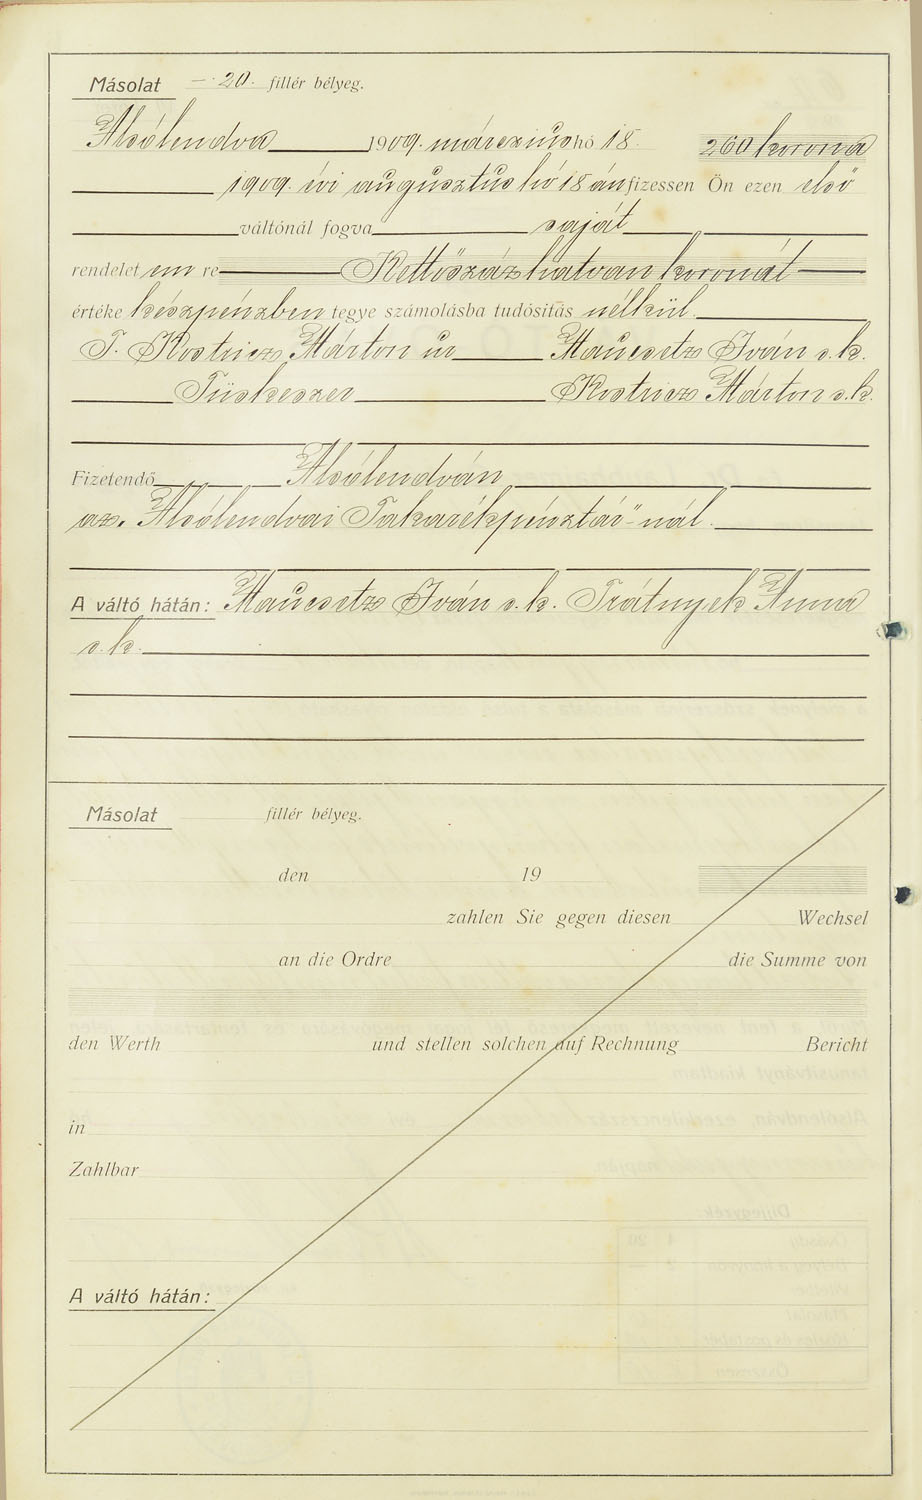 Másolat — 20. fillér bélyeg.
Alsólendva 1909. márczius hó 18. 260 korona
1909. évi augusztus hó 18 án fizessen Ön ezen első
váltónál fogva saját
rendeletem re Kettőszázhatvan koronát
értéke készpénzben tegye számolásba tudósítás nélkül.
T. Kostricz Márton ur Maucsetz Iván s.k.
Tüskeszer Kostricz Márton s.k.
Fizetendő Alsólendván
az „Alsólendvai Takarékpénztár"-nál.
A váltó hátán: Maucsetz Iván s.k. Trátnyek Anna
s.k.
Másolat fillér bélyeg.
den 19
zahlen Sie gegen diesen Wechsel
an die Ordre die Summe von
den Werth und stellen solchen auf Rechnung Bericht
in
Zahlbar
A váltó hátán: